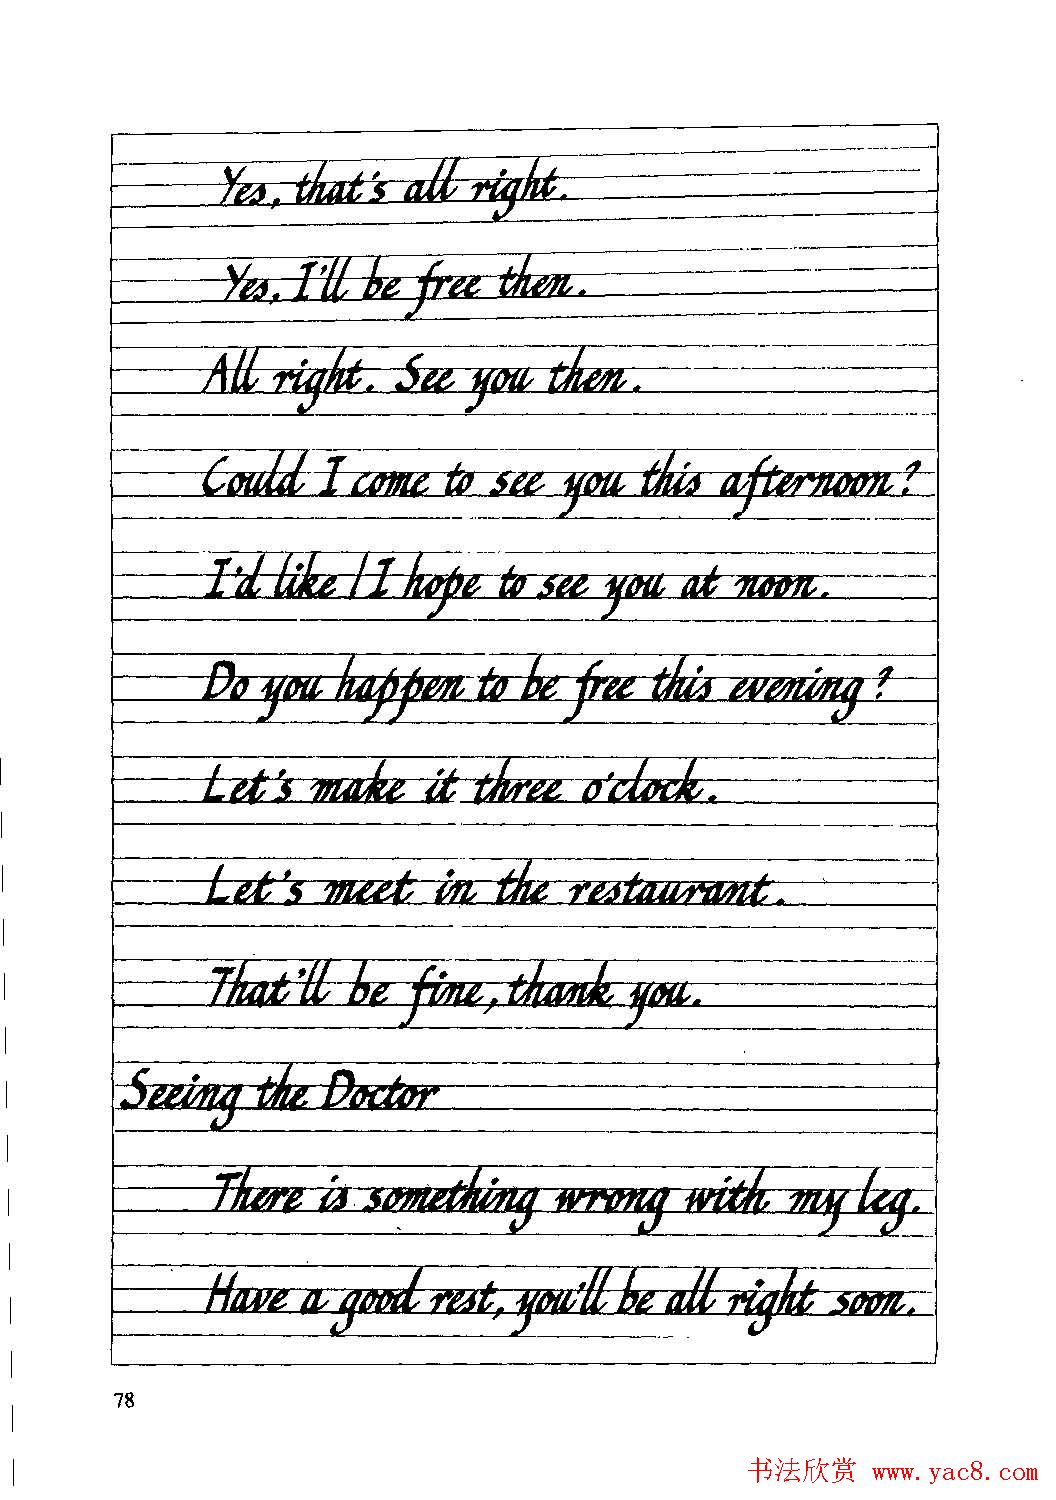 Yes, that's all right.
Yes, I'll be free then.
All right. See you then.
Could I come to see you this afternoon?
I'd like / I hope to see you at noon.
Do you happen to be free this evening?
Let's make it three o'clock.
Let's meet in the restaurant.
That'll be fine, thank you.
Seeing the Doctor
There is something wrong with my leg.
Have a good rest, you'll be all right soon.
78
书法欣赏 www.yac8.com